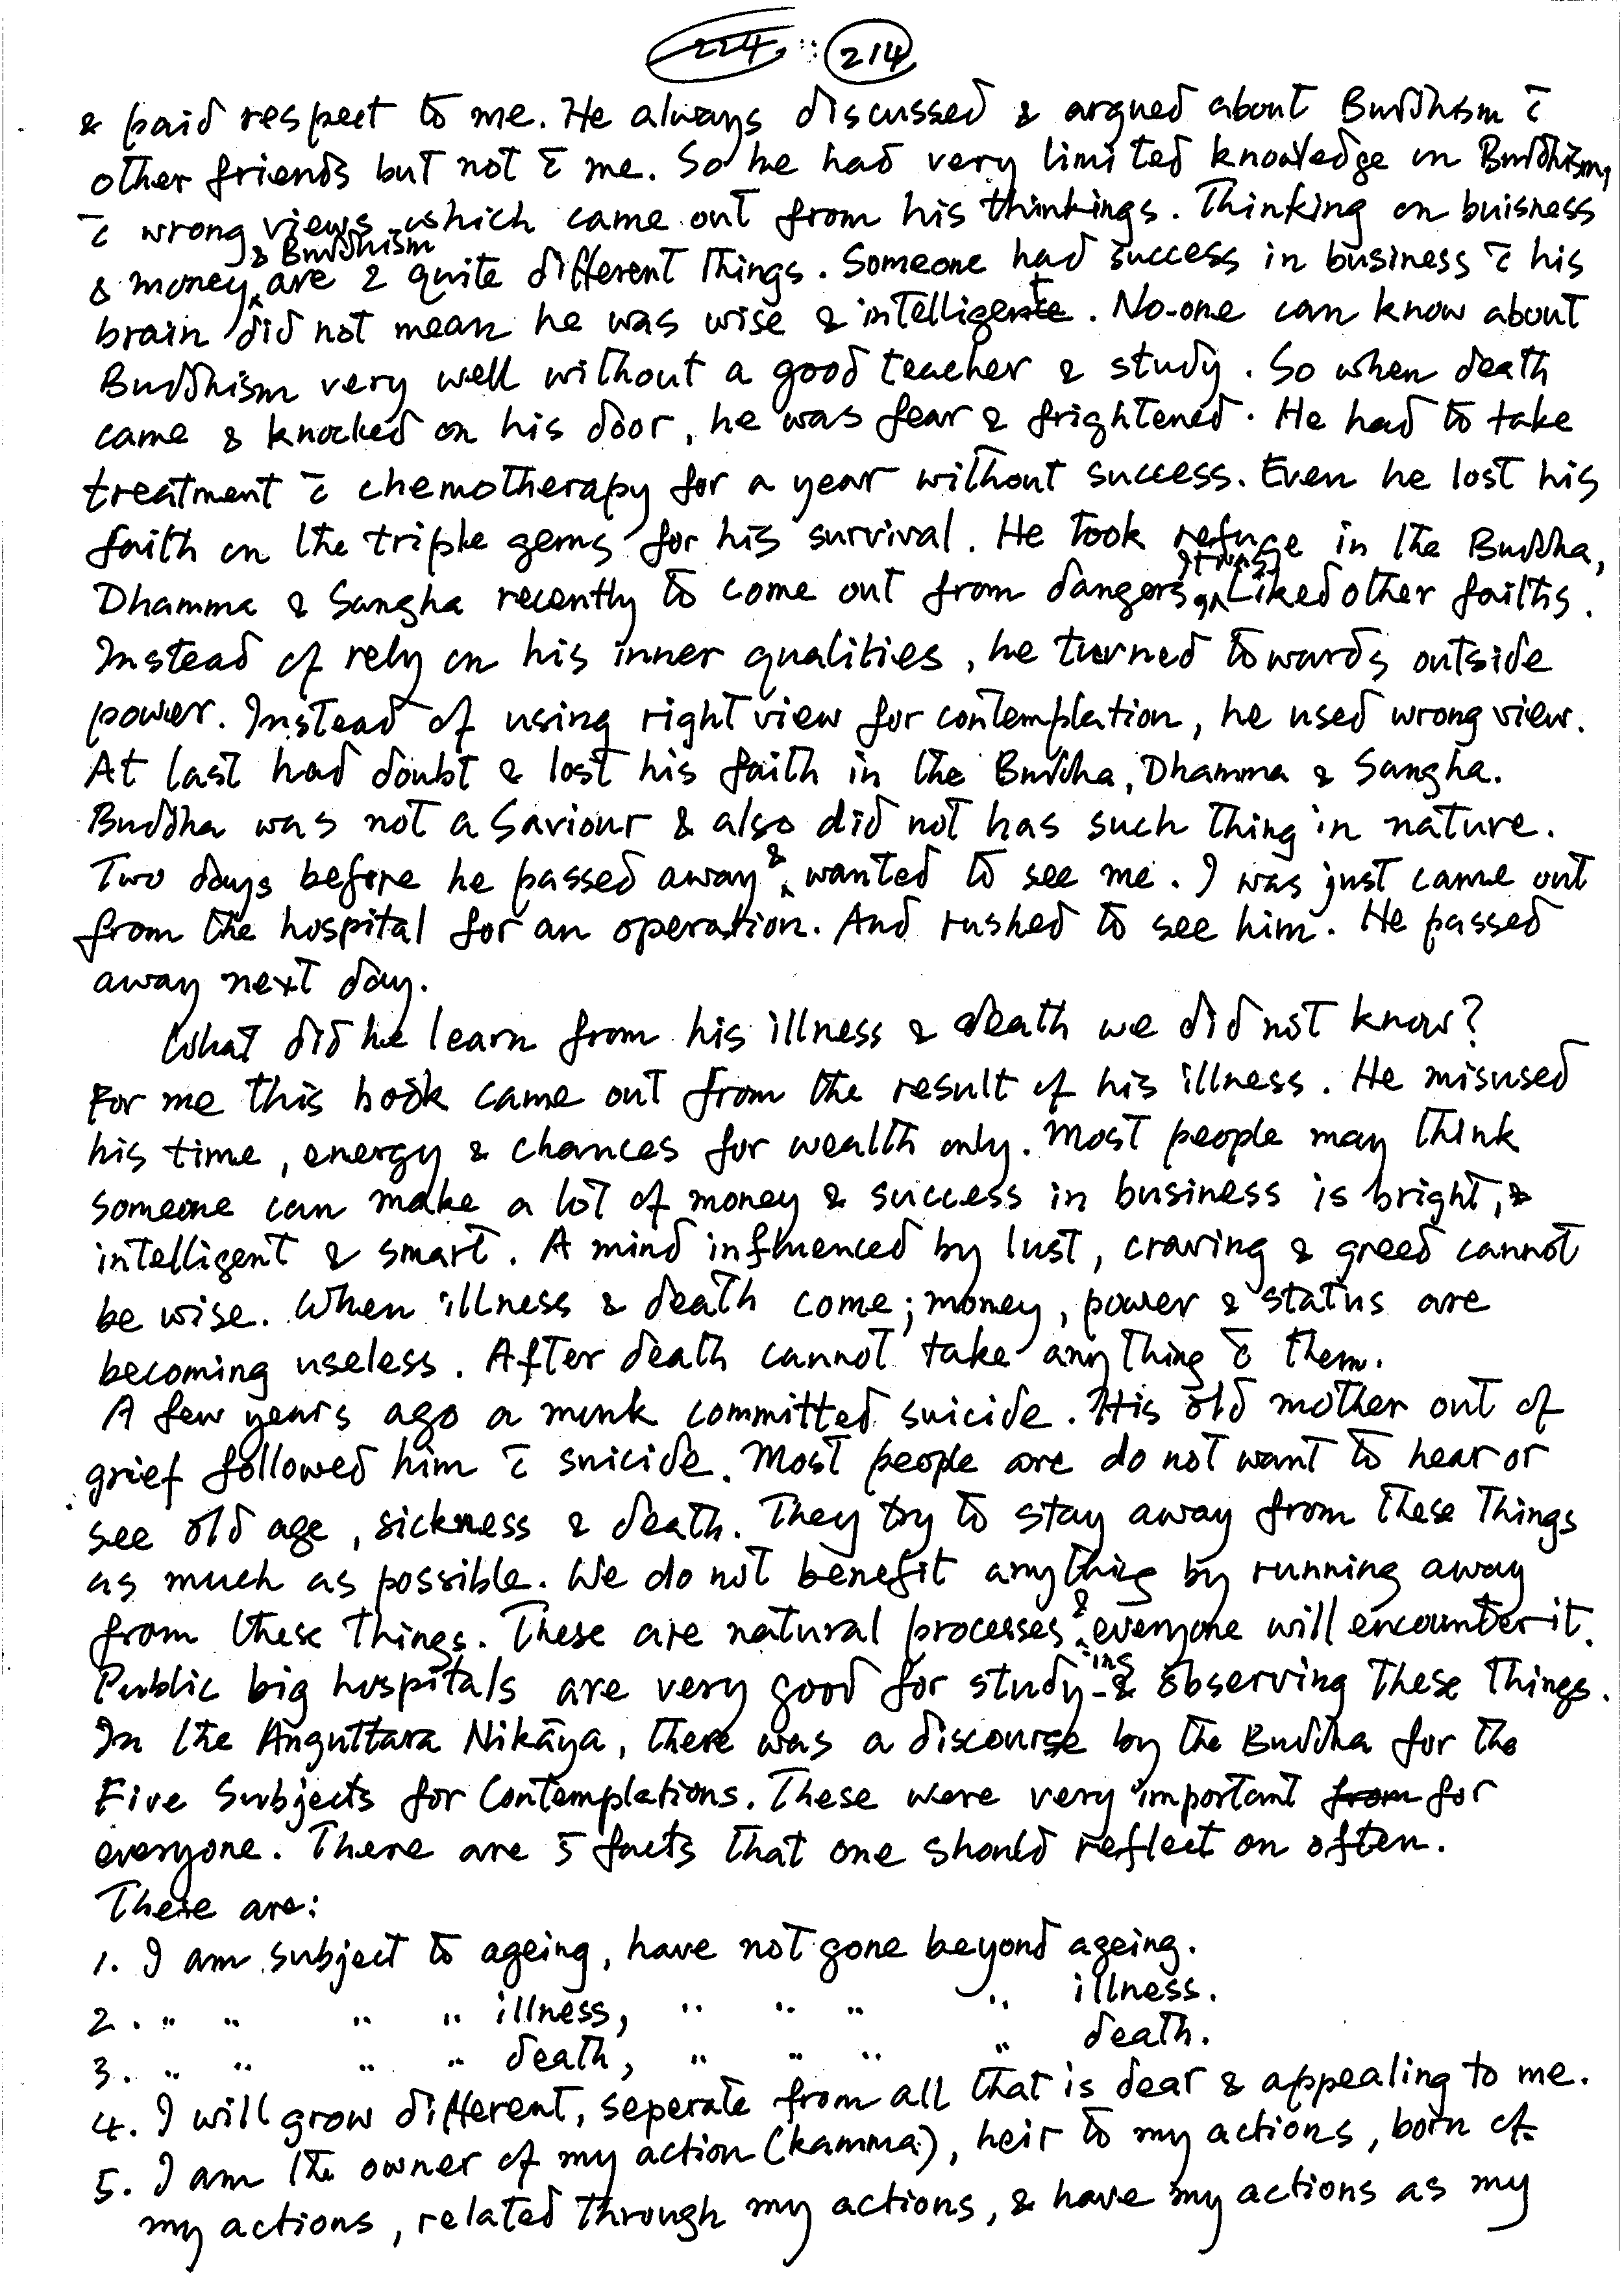 224 214
& paid respect to me. He always discussed & argued about Buddhism c̄
other friends but not c̄ me. So he had very limited knowledge on Buddhism,
c̄ wrong views which came out from his thinkings. Thinking on buisness
& Buddhism
& money are 2 quite different things. Someone had success in business c̄ his
brain did not mean he was wise & intelligent. No-one can know about
Buddhism very well without a good teacher & study. So when death
came & knocked on his door, he was fear & frightened. He had to take
treatment c̄ chemotherapy for a year without success. Even he lost his
faith on the triple gems for his survival. He took refuge in the Buddha,
Dhamma & Sangha recently to come out from dangers Liked other faiths.
Instead of rely on his inner qualities, he turned towards outside
power. Instead of using right view for contemplation, he used wrong view.
At last had doubt & lost his faith in the Buddha, Dhamma & Sangha.
Buddha was not a Saviour & also did not has such thing in nature.
Two days before he passed away & wanted to see me. I was just came out
from the hospital for an operation. And rushed to see him. He passed
away next day.
What did he learn from his illness & death we did not know?
For me this book came out from the result of his illness. He misused
his time, energy & chances for wealth only. Most people may think
someone can make a lot of money & success in business is bright, &
intelligent & smart. A mind influenced by lust, craving & greed cannot
be wise. When illness & death come; money, power & status are
becoming useless. After death cannot take anything c̄ them.
A few years ago a monk committed suicide. His old mother out of
grief followed him c̄ suicide. Most people are do not want to hear or
see old age, sickness & death. They try to stay away from these things
as much as possible. We do not benefit anything by running away
from these things. These are natural processes & everyone will encounter it.
Public big hospitals are very good for study-ing & observing these things.
In the Anguttara Nikāya, there was a discourse by the Buddha for the
Five Subjects for Contemplations. These were very important from for
everyone. There are 5 facts that one should reflect on often.
These are:
1. I am subject to ageing, have not gone beyond ageing.
2. " " " " illness, " " " " illness.
3. " " " " death, " " " " death.
4. I will grow different, seperate from all that is dear & appealing to me.
5. I am the owner of my action (kamma), heir to my actions, born of
my actions, related through my actions, & have my actions as my